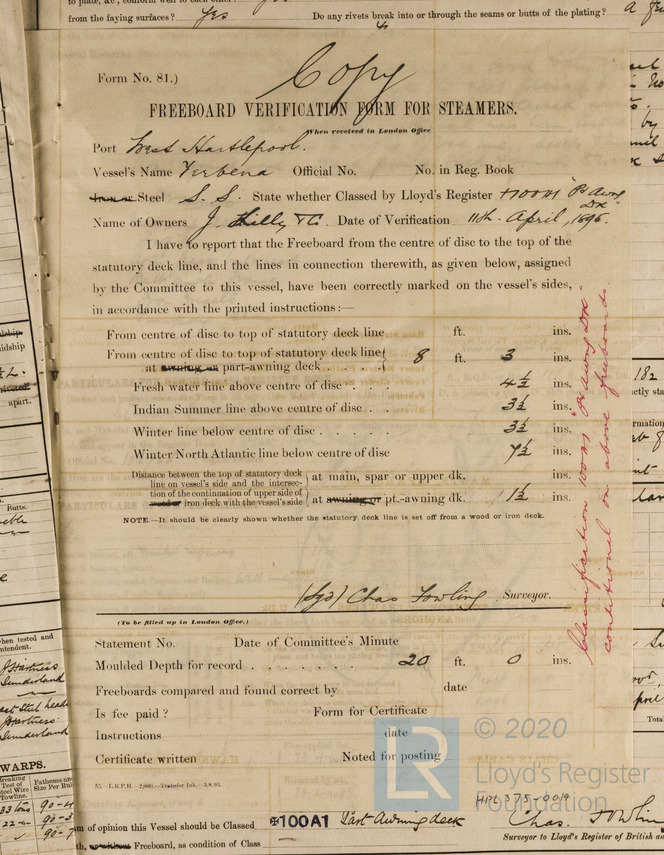 from the faying surfaces? Yes Do any rivets break into or through the seams or butts of the plating? a few
Copy
Form No. 81.)
FREEBOARD VERIFICATION FORM FOR STEAMERS.
When received in London Office
Port West Hartlepool.
Vessel's Name Verbena Official No. No. in Reg. Book
Iron or Steel S. S. State whether Classed by Lloyd's Register +100A1 "Pt Awng Dk"
Name of Owners J. Lilly & Co. Date of Verification 11th April, 1896.
I have to report that the Freeboard from the centre of disc to the top of the
statutory deck line, and the lines in connection therewith, as given below, assigned
by the Committee to this vessel, have been correctly marked on the vessel's sides,
in accordance with the printed instructions:—
From centre of disc to top of statutory deck line ft. ins.
From centre of disc to top of statutory deck line
at awning or part-awning deck . . . . 8 ft. 3 ins.
Fresh water line above centre of disc . . . 4½ ins.
Indian Summer line above centre of disc . . 3½ ins.
Winter line below centre of disc . . . . . 3½ ins.
Winter North Atlantic line below centre of disc 7½ ins.
Distance between the top of statutory deck
line on vessel's side and the intersec- at main, spar or upper dk. ins.
tion of the continuation of upper side of
wood or iron deck with the vessel's side at awning or pt.-awning dk. 1½ ins.
NOTE.—It should be clearly shown whether the statutory deck line is set off from a wood or iron deck.
Classification 100A1 "Pt Awng Dk"
conditional on above freeboards
(Sgd) Chas Fowling Surveyor.
(To be filled up in London Office.)
Statement No. Date of Committee's Minute
Moulded Depth for record . . . . . . . 20 ft. 0 ins.
Freeboards compared and found correct by date
Is fee paid? Form for Certificate
Instructions date
Certificate written Noted for posting
55.—L.R.P.H.—2,000.—Transfer Ink.—3,8,95.
LR
© 2020
Lloyd's Register
Foundation
HPL375-0019
WARPS.
am of opinion this Vessel should be Classed ✠100A1 Part Awning deck
th, or without Freeboard, as condition of Class
Chas. Fowling
Surveyor to Lloyd's Register of British an